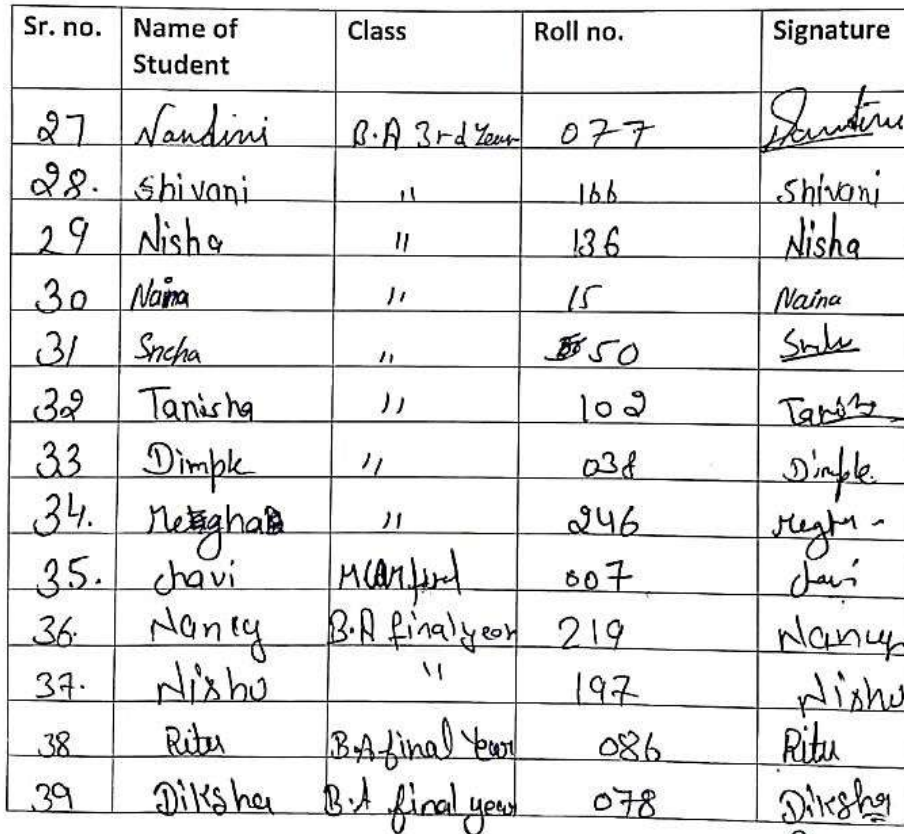 Sr. no. Name of Student Class Roll no. Signature
27 Nandini B.A 3rd Year 077 Nandini
28. Shivani " 166 Shivani
29 Nisha " 136 Nisha
30 Naina " 15 Naina
31 Sneha " 50
32 Tanisha " 102 Tanisha
33 Dimple " 038 Dimple
34. Megha " 246 Megha
35. chavi final 007 chavi
36. Nancy B.A final year 219 Nancy
37. Nishu " 197 Nishu
38 Ritu B.A final Year 086 Ritu
39 Diksha B.A final year 078 Diksha